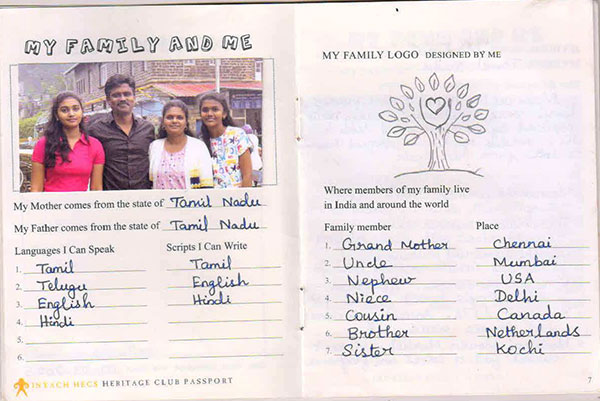 MY FAMILY AND ME
My Mother comes from the state of Tamil Nadu
My Father comes from the state of Tamil Nadu
Languages I Can Speak Scripts I Can Write
1. Tamil Tamil
2. Telugu English
3. English Hindi
4. Hindi
5.
6.
INTACH HECS HERITAGE CLUB PASSPORT
MY FAMILY LOGO DESIGNED BY ME
Where members of my family live
in India and around the world
Family member Place
1. Grand Mother Chennai
2. Uncle Mumbai
3. Nephew USA
4. Niece Delhi
5. Cousin Canada
6. Brother Netherlands
7. Sister Kochi
7